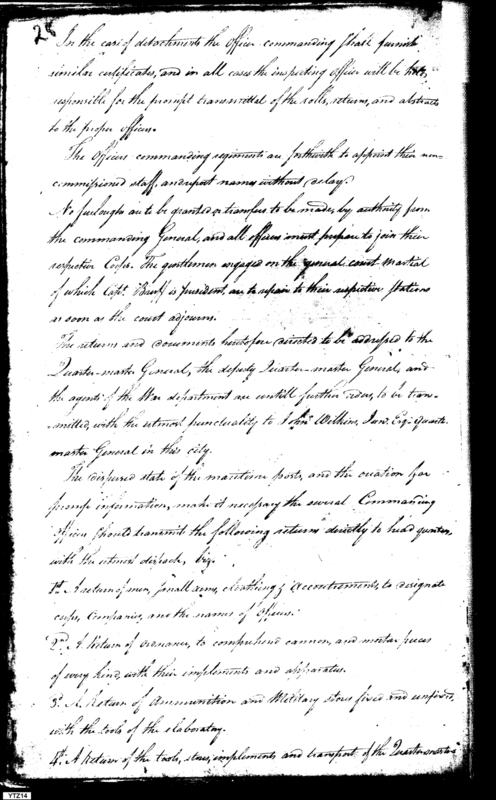 28
In the case of detachments the Officer commanding shall furnish
similar certificates, and in all cases the inspecting officer will be
responsible for the prompt transmittal of the rolls, returns, and abstracts
to the proper officers.
The Officers commanding regiments are forthwith to appoint their non-
commissioned staff, and report names without delay.
No furloughs are to be granted or transfers to be made, by authority from
the commanding General, and all officers must prepare to join their
respective Corps. The gentlemen engaged on the general court martial
of which Capt. is President, are to repair to their respective stations
as soon as the court adjourns.
The returns and documents heretofore directed to be addressed to the
Quarter-master General, the deputy Quarter-master General, and
the agents of the War department are untill further orders, to be trans-
mitted, with the utmost punctuality to John Wilkins, Jun. Esq. Quarter-
master General in this city.
The dispersed state of the maritime posts, and the for
prompt information, make it necessary the several Commanding
Officers should transmit the following returns directly to head quarters,
with the utmost dispatch, Viz.
1st A return of men, small arms, clothing & accoutrements, to designate
corps, Companies, and the names of Officers.
2nd. A Return of ordnance, to comprehend cannon, and mortar pieces
of every kind, with their implements and apparatus.
3d. A Return of Ammunition and Military stores fixed and unfixed,
with the tools of the elaboratory.
4th. A Return of the tools, stores, implements and transport, of the Quarter-master
YTZ14